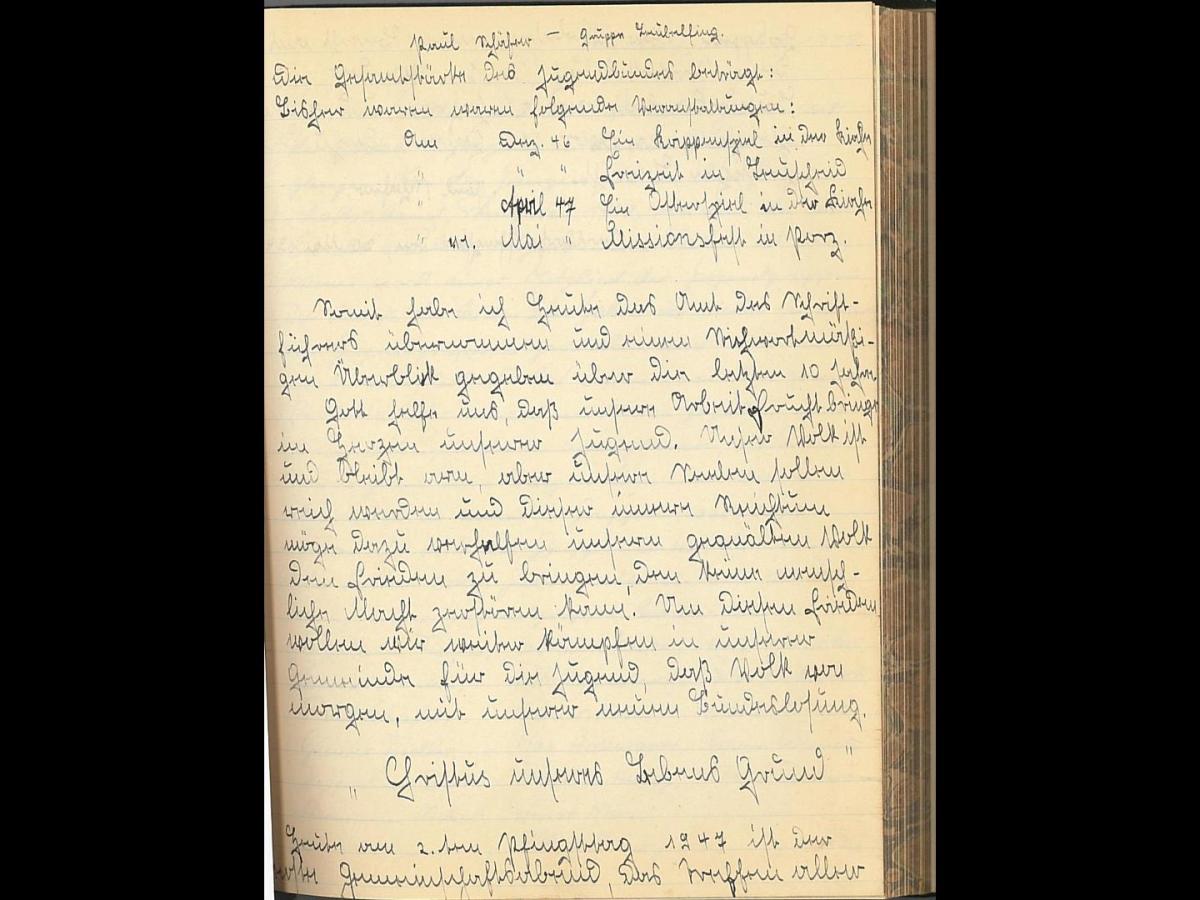 Paul Schäfer — Gruppe
Die Gesamtstärke des Jugendbundes beträgt:
Bisher waren waren folgende Veranstaltungen:
Am Dez. 46 Ein Krippenspiel in der Kirche
" " " Freizeit in
" April 47 Ein Osterspiel in der Kirche
" 11. Mai " Missionsfest in Porz.
Somit habe ich Heute das Amt des Schrift-
führers übernommen und einen Stichwortmäßi-
gen Überblick gegeben über die letzten 10 Jahre.
Gott helfe uns, daß unsere Arbeit Frucht bringe
in Herzen unserer Jugend. Unser Volk ist
und bleibt arm, aber unsere Seelen sollen
reich werden und dieser innere Reichtum
möge dazu verhelfen unserm gequälten Volk
den Frieden zu bringen, den keine mensch-
liche Macht zerstören kann. Um diesen Frieden
wollen wir weiter kämpfen in unserer
Gemeinde für die Jugend, daß Volk von
morgen, mit unserer neuen Bundeslosung.
„ Christus unseres Lebens Grund "
Heute am 2. ten Pfingsttag 1947 ist der
erste Gemeinschaftsabend, das Treffen aller